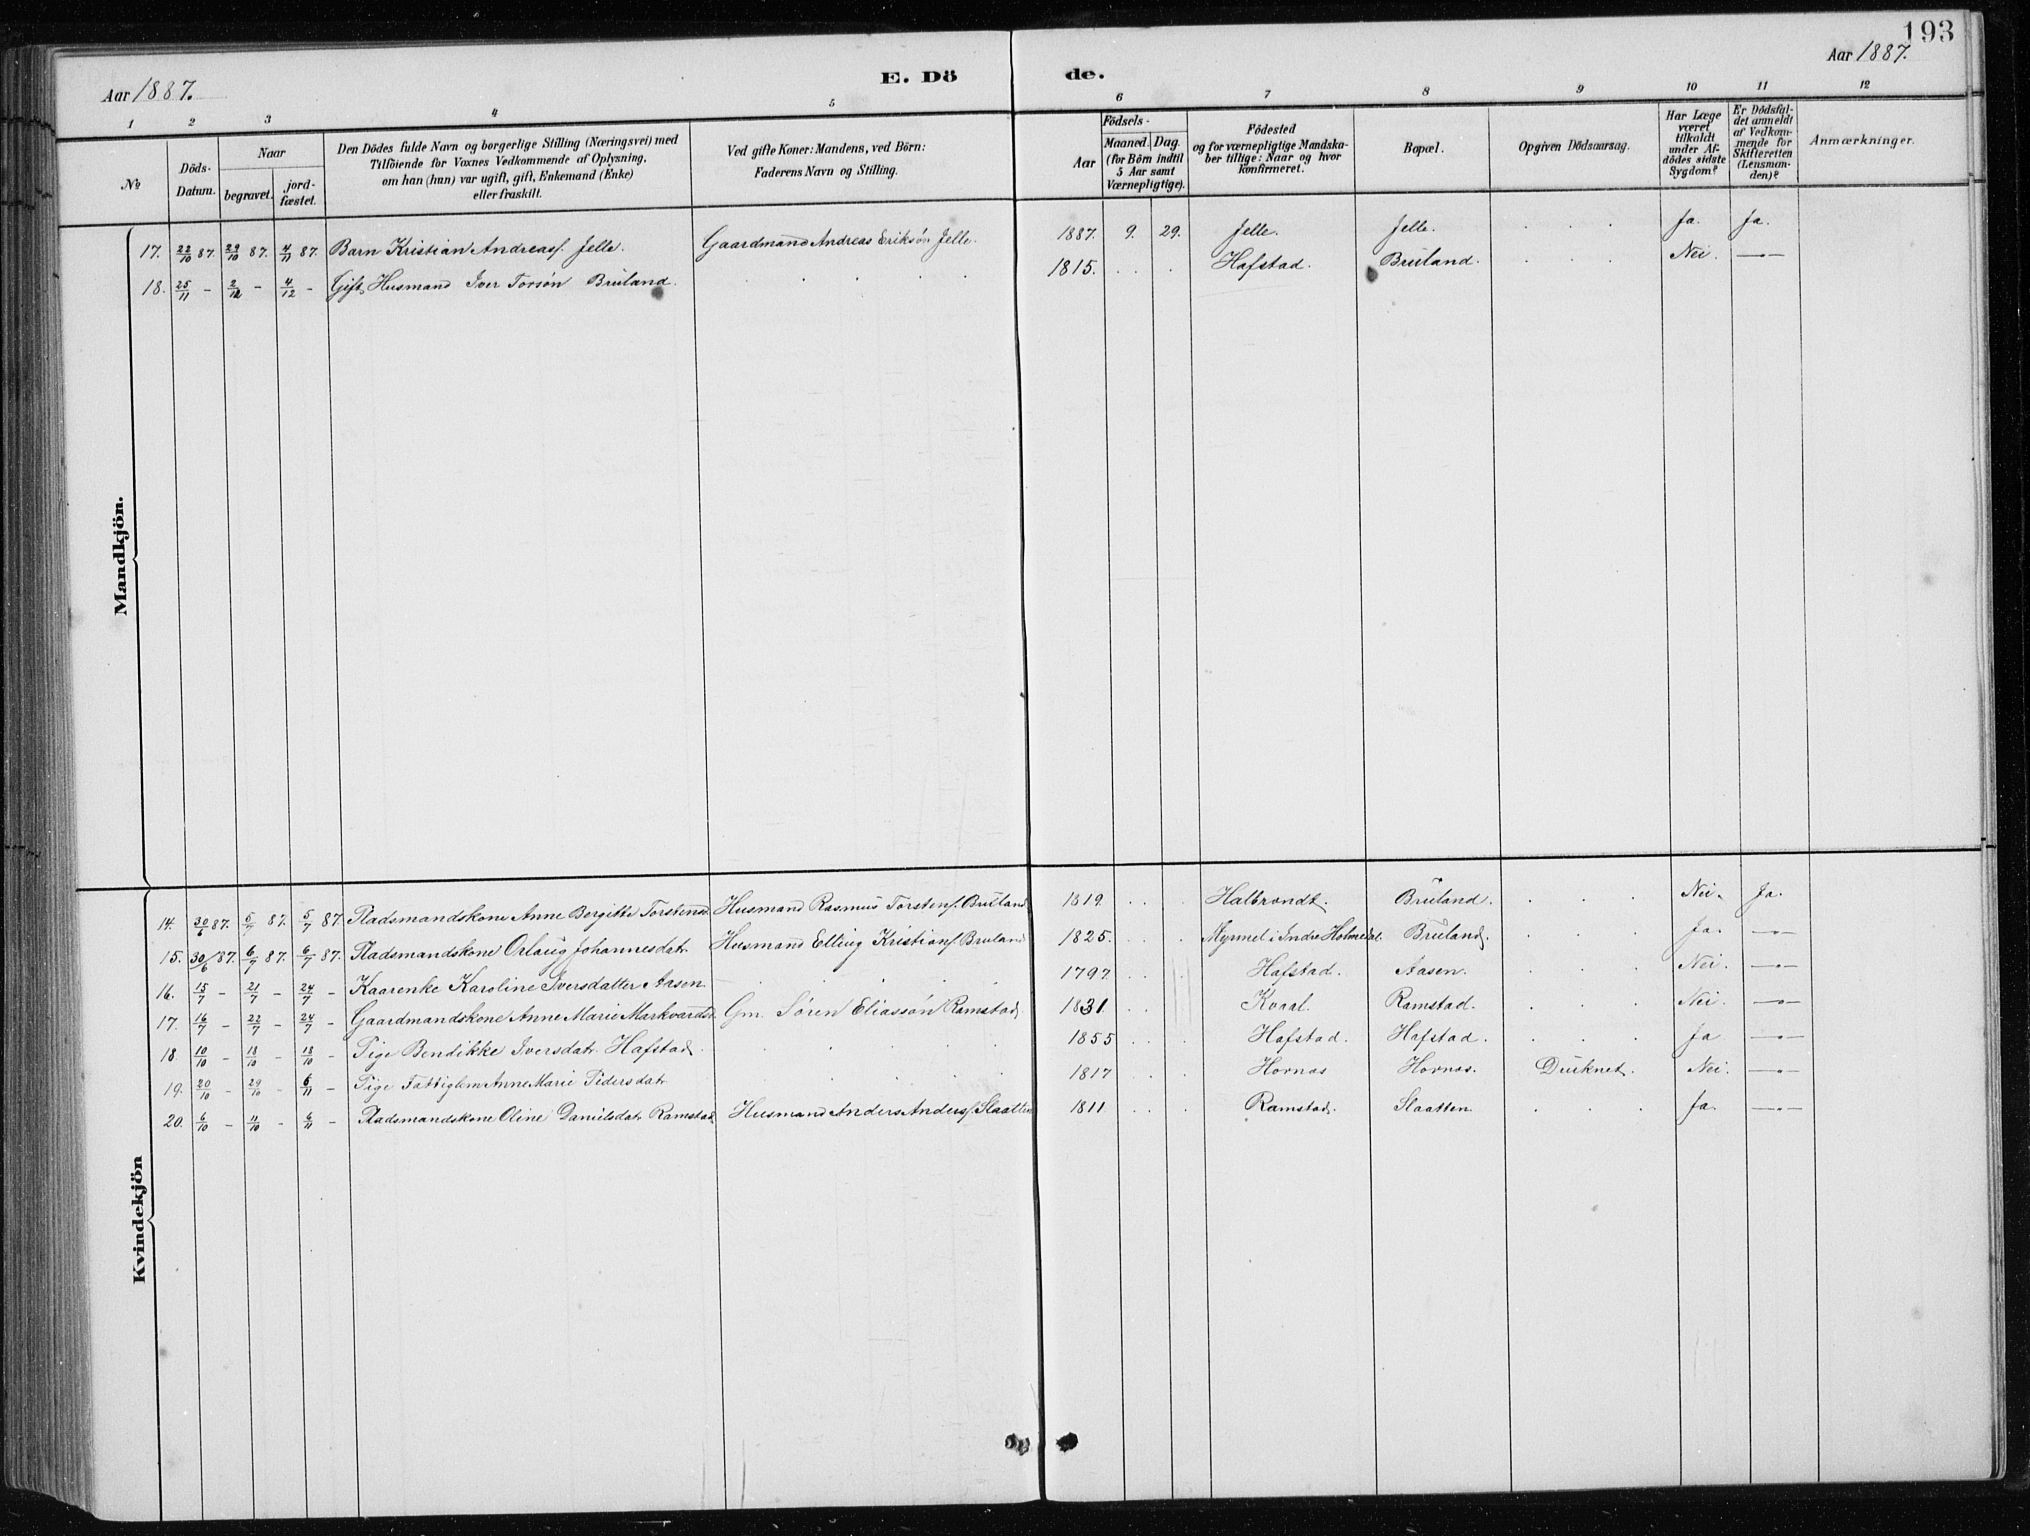 193
Aar 1887. E. Dö de. Aar 1887.
1 2 3 4 5 6 7 8 9 10 11 12
№
Döds-
Datum.
Naar
begravet.
jord-
fæstet.
Den Dödes fulde Navn og borgerlige Stilling (Næringsvei) med
Tilföiende for Voxnes Vedkommende af Oplysning,
om han (hun) var ugift, gift, Enkemand (Enke)
eller fraskilt.
Ved gifte Koner: Mandens, ved Börn:
Faderens Navn og Stilling.
Födsels-
Aar
Maaned. Dag.
(for Börn indtil
5 Aar samt
Værnepligtige).
Födested
og for værnepligtige Mandska-
ber tillige: Naar og hvor
konfirmeret.
Bopæl.
Opgiven Dödsaarsag.
Har Læge
været
tilkaldt
under Af-
dödes sidste
Sygdom?
Er Dödsfal-
det anmeldt
af Vedkom-
mende for
Skifteretten
(Lensman-
den)?
Anmærkninger.
Mandkjön.
17. 22/10 87. 29/10 87. 4/11 87. Barn Kristian Andreasf. Jelle. Gaardmand Andreas Eriksøn Jelle. 1887. 9. 29. Jelle. Jelle. . . . Ja. Ja.
18. 25/11 - 2/12 - 4/12 - Gift Husmand Iver Torsøn Bruland. . . . . 1815. . . . Hafstad. Bruland. . . . Nei. —"—
Kvindekjön
14. 30/6 87. 5/7 87. 5/7 87. Pladsmandskone Anne Bergitte Torstensd. Husmand Rasmus Torstenf. Bruland 1819. . . . Halbrendt. Bruland. . . . Nei. Ja.
15. 30/6 87. 6/7 87. 6/7 87. Pladsmandskone Orlaug Johannesdatr. Husmand Elling Kristianf. Bruland 1825. . . . Myrmel i Indre Holmedal. Bruland. . . . Ja. —"—
16. 15/7 - 21/7 - 24/7 - Kaarenke Karoline Iversdatter Aasen 1797. Hafstad. Aasen. . . . Nei. —"—
17. 16/7 - 22/7 - 24/7 - Gaardmandskone Anne Marie Markvardsd. Gm. Søren Eliassøn Ramstad. 1831 . . Kvaal. Ramstad. . . . Nei. —"—
18 10/10 - 18/10 - 18/10 - Pige Bendikke Iversdatr. Hafstad. . . . . 1855 . . . Hafstad. Hafstad. . . . Ja —"—
19. 20/10 - 29/10 - 6/11 - Pige Fattiglem Anne Marie Pedersdatr . . . . 1817 . . . Hornas Hornas. Druknet. Nei. —"—
20. 6/10 - 11/10 - 6/11 - Pladsmandskone Oline Danielsdatr Ramstad Husmand Anders Andersf. Slaatten 1811 . . . Ramstad. Slaatten . . . Ja. —"—